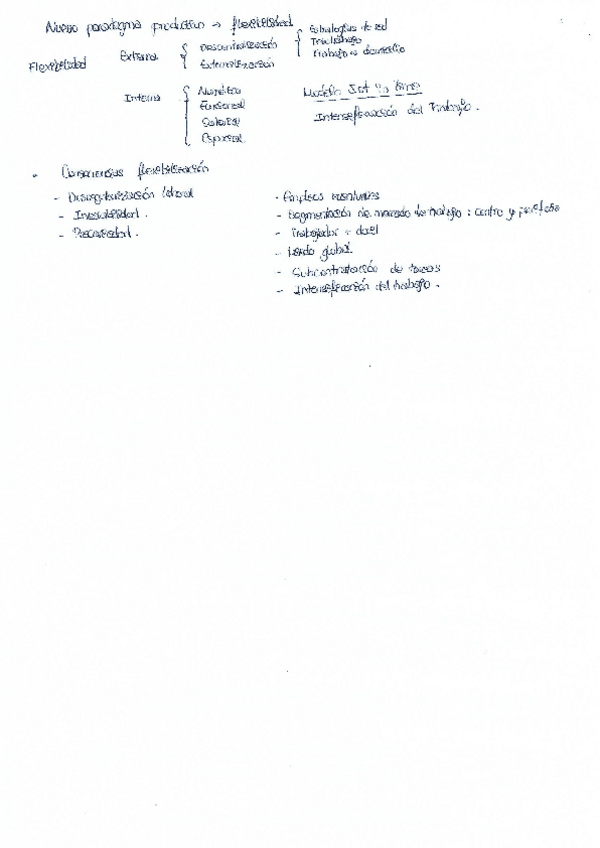 Nuevo paradigma productivo → flexibilidad
Estrategias de red
Teletrabajo
Trabajo a domicilio
Flexibilidad
Externa
Descentralización
Externalización
Interna
Numérica
Funcional
Salarial
Espacial
Modelo Just in time
Intensificación del Trabajo.
- Consecuencias flexibilización
- Desregularización laboral
- Inestabilidad.
- Precariedad.
- Empleos eventuales
- Segmentación de mercado de trabajo: centro y periferia
- Trabajador
- global
- Subcontratación de tareas
- Intensificación del trabajo.